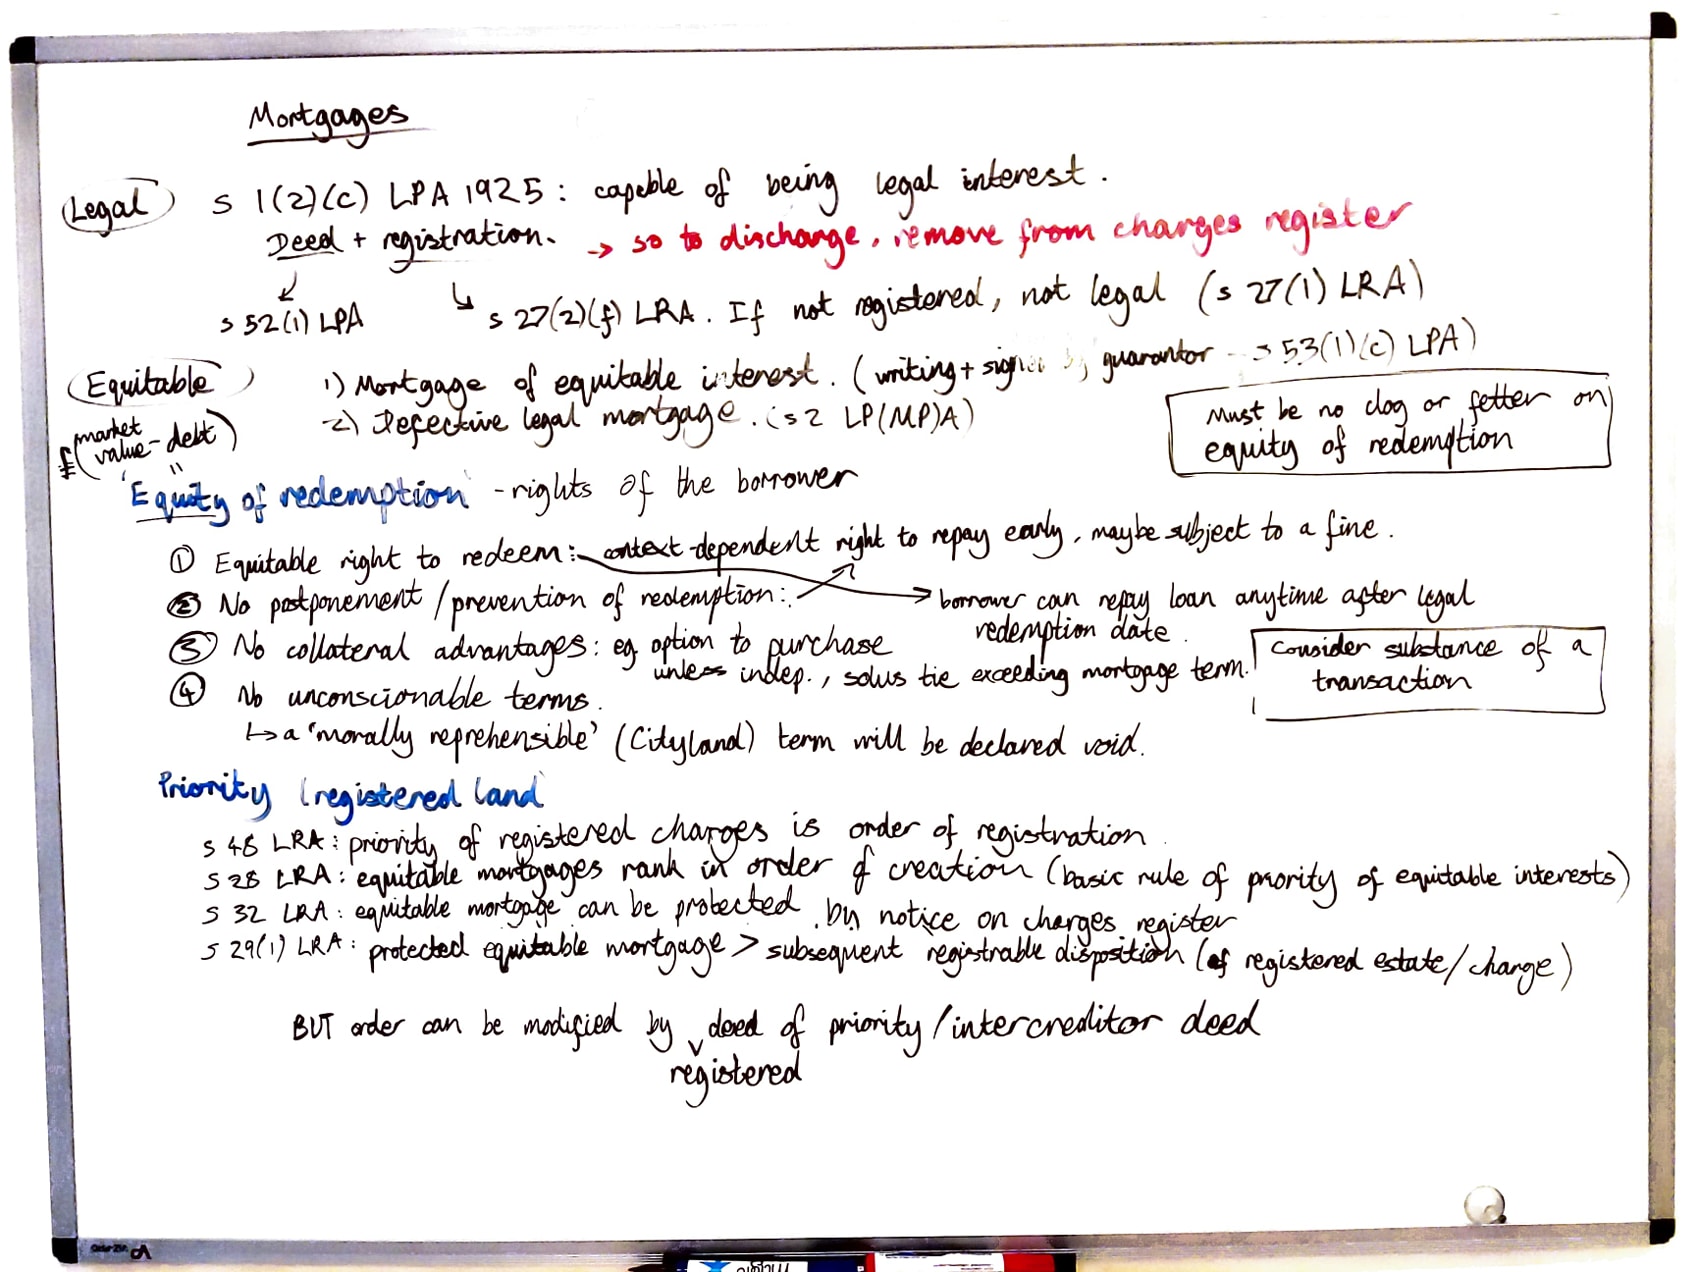 Mortgages
Legal s 1(2)(c) LPA 1925: capable of being legal interest.
Deed + registration. → so to discharge, remove from charges register
s 52(1) LPA
s 27(2)(f) LRA. If not registered, not legal (s 27(1) LRA)
Equitable 1) Mortgage of equitable interest. (writing + signed by guarantor - s 53(1)(c) LPA)
2) Defective legal mortgage. (s 2 LP(MP)A)
Must be no clog or fetter on
equity of redemption
£(market value - debt)
"
'Equity of redemption' - rights of the borrower
① Equitable right to redeem: context-dependent right to repay early, maybe subject to a fine.
② No postponement/prevention of redemption: → borrower can repay loan anytime after legal
redemption date.
③ No collateral advantages: eg option to purchase
unless indep., solus tie exceeding mortgage term.
consider substance of a
transaction
④ No unconscionable terms.
↳ a 'morally reprehensible' (Cityland) term will be declared void.
Priority (registered land
s 48 LRA: priority of registered charges is order of registration
s 28 LRA: equitable mortgages rank in order of creation (basic rule of priority of equitable interests)
s 32 LRA: equitable mortgage can be protected by notice on charges register
s 29(1) LRA: protected equitable mortgage > subsequent registrable disposition (of registered estate/charge)
BUT order can be modified by deed of priority/intercreditor deed
registered